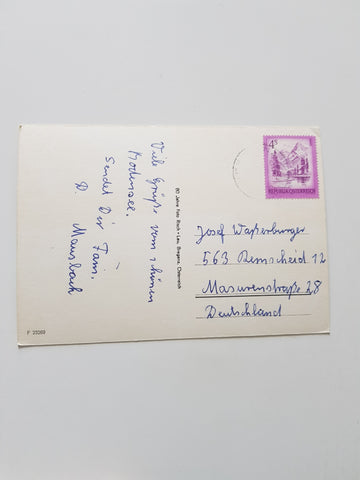 Viele Grüße vom schönen
Bodensee.
Sendet Dir Fam.
D. Mausbach
80 Jahre Foto Risch-Lau, Bregenz, Österreich
F 23269
4 S
REPUBLIK ÖSTERREICH
Josef Waßerburger
563 Remscheid 12
Masurenstraße 28
Deutschland